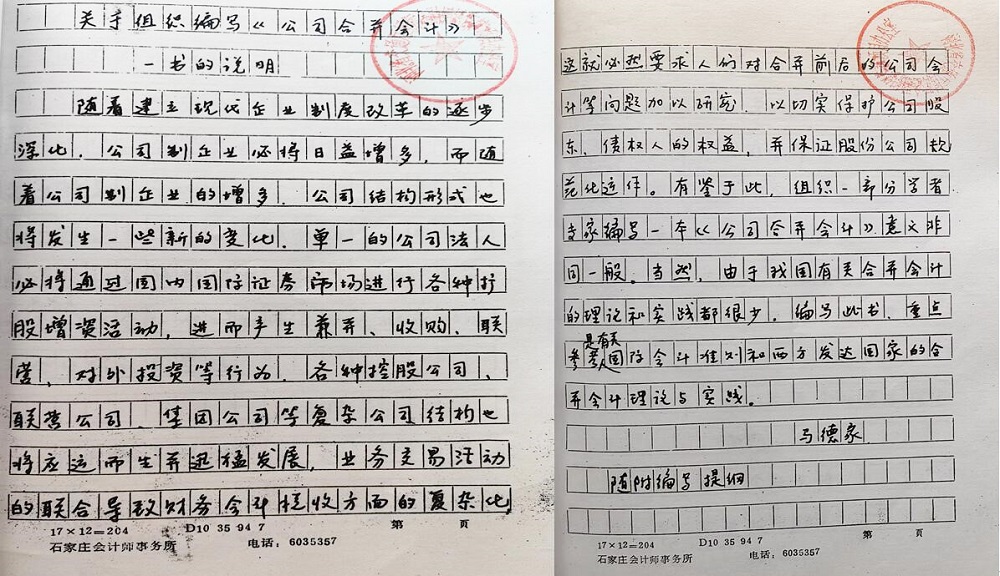 关于组织编写《公司合并会计》
一书的说明
随着建立现代企业制度改革的逐步
深化，公司制企业必将日益增多，而随
着公司制企业的增多，公司结构形式也
将发生一些新的变化，单一的公司法人
必将通过国内国际证券市场进行各种扩
股增资活动，进而产生兼并、收购、联
营、对外投资等行为，各种控股公司、
联营公司、集团公司等复杂公司结构也
将应运而生并迅猛发展，业务交易活动
的联合导致财务会计核收方面的复杂化，
17×12=204 D10 35 94 7 第 页
石家庄会计师事务所 电话：6035357
这就必然要求人们对合并前后的公司会
计等问题加以研究，以切实保护公司股
东、债权人的权益，并保证股份公司规
范化运作。有鉴于此，组织一部分学者
专家编写一本《公司合并会计》意义非
同一般。当然，由于我国有关合并会计
的理论和实践都很少，编写此书，重点
是有关
参考国际会计准则和西方发达国家的合
并会计理论与实践。
马德家
随附编写提纲
17×12=204 D10 35 94 7 第 页
石家庄会计师事务所 电话：6035357